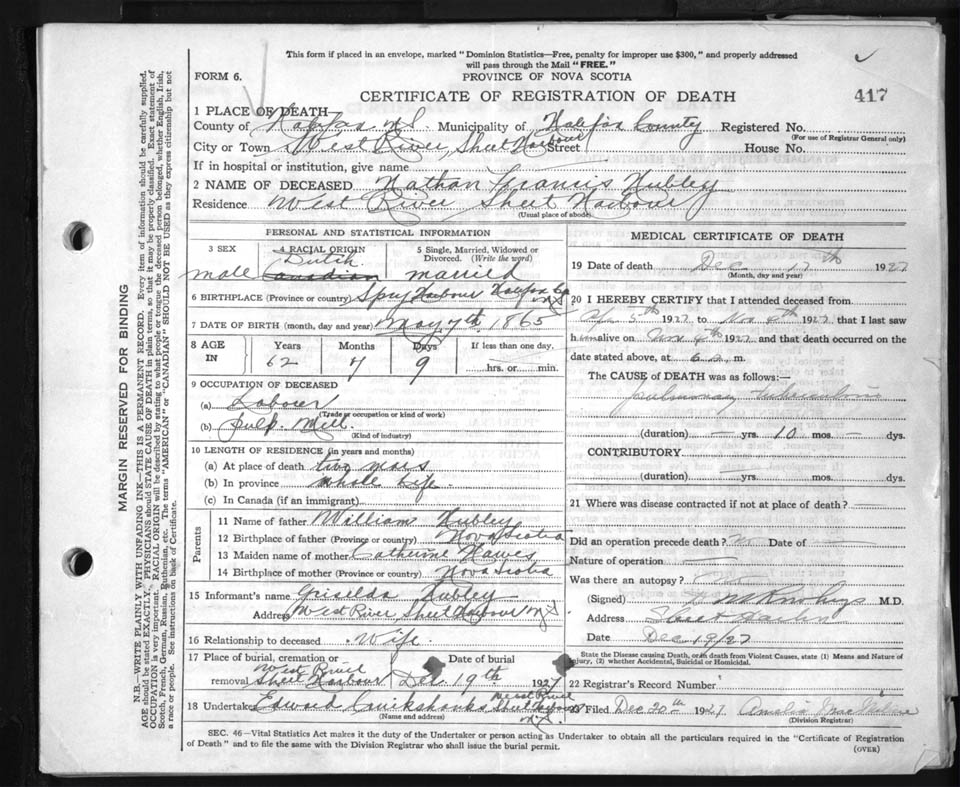 This form if placed in an envelope, marked "Dominion Statistics—Free, penalty for improper use $300," and properly addressed
will pass through the Mail "FREE."
FORM 6.
PROVINCE OF NOVA SCOTIA
CERTIFICATE OF REGISTRATION OF DEATH
417
1 PLACE OF DEATH—
County of Municipality of Halifax County Registered No.
(For use of Registrar General only)
City or Town West River, Sheet Harbour Street House No.
If in hospital or institution, give name
2 NAME OF DECEASED Nathan Francis Hubley
Residence West River Sheet Harbour
(Usual place of abode)
PERSONAL AND STATISTICAL INFORMATION
3 SEX
male
4 RACIAL ORIGIN
Dutch
Canadian
5 Single, Married, Widowed or Divorced. (Write the word)
married
6 BIRTHPLACE (Province or country) Spry Harbour Halifax Co
N.S
7 DATE OF BIRTH (month, day and year) May 7th 1865
8 AGE IN
Years Months Days If less than one day,
62 7 9 hrs. or min.
9 OCCUPATION OF DECEASED
(a) Labourer
(Trade or occupation or kind of work)
(b) Pulp. Mill.
(Kind of industry)
10 LENGTH OF RESIDENCE (in years and months)
(a) At place of death two mos
(b) In province whole life
(c) In Canada (if an immigrant)
Parents
11 Name of father William Hubley
12 Birthplace of father (Province or country) Nova Scotia
13 Maiden name of mother Catherine Hawes
14 Birthplace of mother (Province or country) Nova Scotia
15 Informant's name Griselda Hubley
Address West River Sheet Harbour N.S
16 Relationship to deceased Wife
17 Place of burial, cremation or removal West River Sheet Harbour
Date of burial
Dec. 19th 1927
18 Undertaker Edward Cruikshanks West River Sheet Harbour N.S.
(Name and address)
MEDICAL CERTIFICATE OF DEATH
19 Date of death Dec 17th 1927
(Month, day and year)
20 I HEREBY CERTIFY that I attended deceased from
5th 1927 to Nov 8th 1927 that I last saw
him alive on 1927 and that death occurred on the
date stated above, at 6 a. m.
The CAUSE of DEATH was as follows:—
pulmonary tuberculosis
(duration) — yrs. 10 mos — dys.
CONTRIBUTORY
(duration) yrs. mos. dys.
21 Where was disease contracted if not at place of death?
Did an operation precede death? no Date of —
Nature of operation —
Was there an autopsy? no
(Signed) M.D.
Address Sheet Harbour
Date Dec 19/27
State the Disease causing Death, or, in death from Violent Causes, state (1) Means and Nature of
Injury, (2) whether Accidental, Suicidal or Homicidal.
22 Registrar's Record Number
23 Filed Dec 20th 1927 Amelia
(Division Registrar)
SEC. 46—Vital Statistics Act makes it the duty of the Undertaker or person acting as Undertaker to obtain all the particulars required in the "Certificate of Registration
of Death" and to file the same with the Division Registrar who shall issue the burial permit.
(OVER)
MARGIN RESERVED FOR BINDING
N.B.—WRITE PLAINLY WITH UNFADING INK—THIS IS A PERMANENT RECORD. Every item of information should be carefully supplied.
AGE should be stated EXACTLY. PHYSICIANS should STATE CAUSE OF DEATH in plain terms, so that it may be properly classified. Exact statement of
OCCUPATION is very important. RACIAL ORIGIN will be described by stating to what people or tongue the deceased person belonged, whether English, Irish,
Scotch, French, German, Russian, Ruthenian, etc. The terms "AMERICAN" or "CANADIAN" SHOULD NOT BE USED as they express citizenship but not
a race or people. See instructions on back of Certificate.